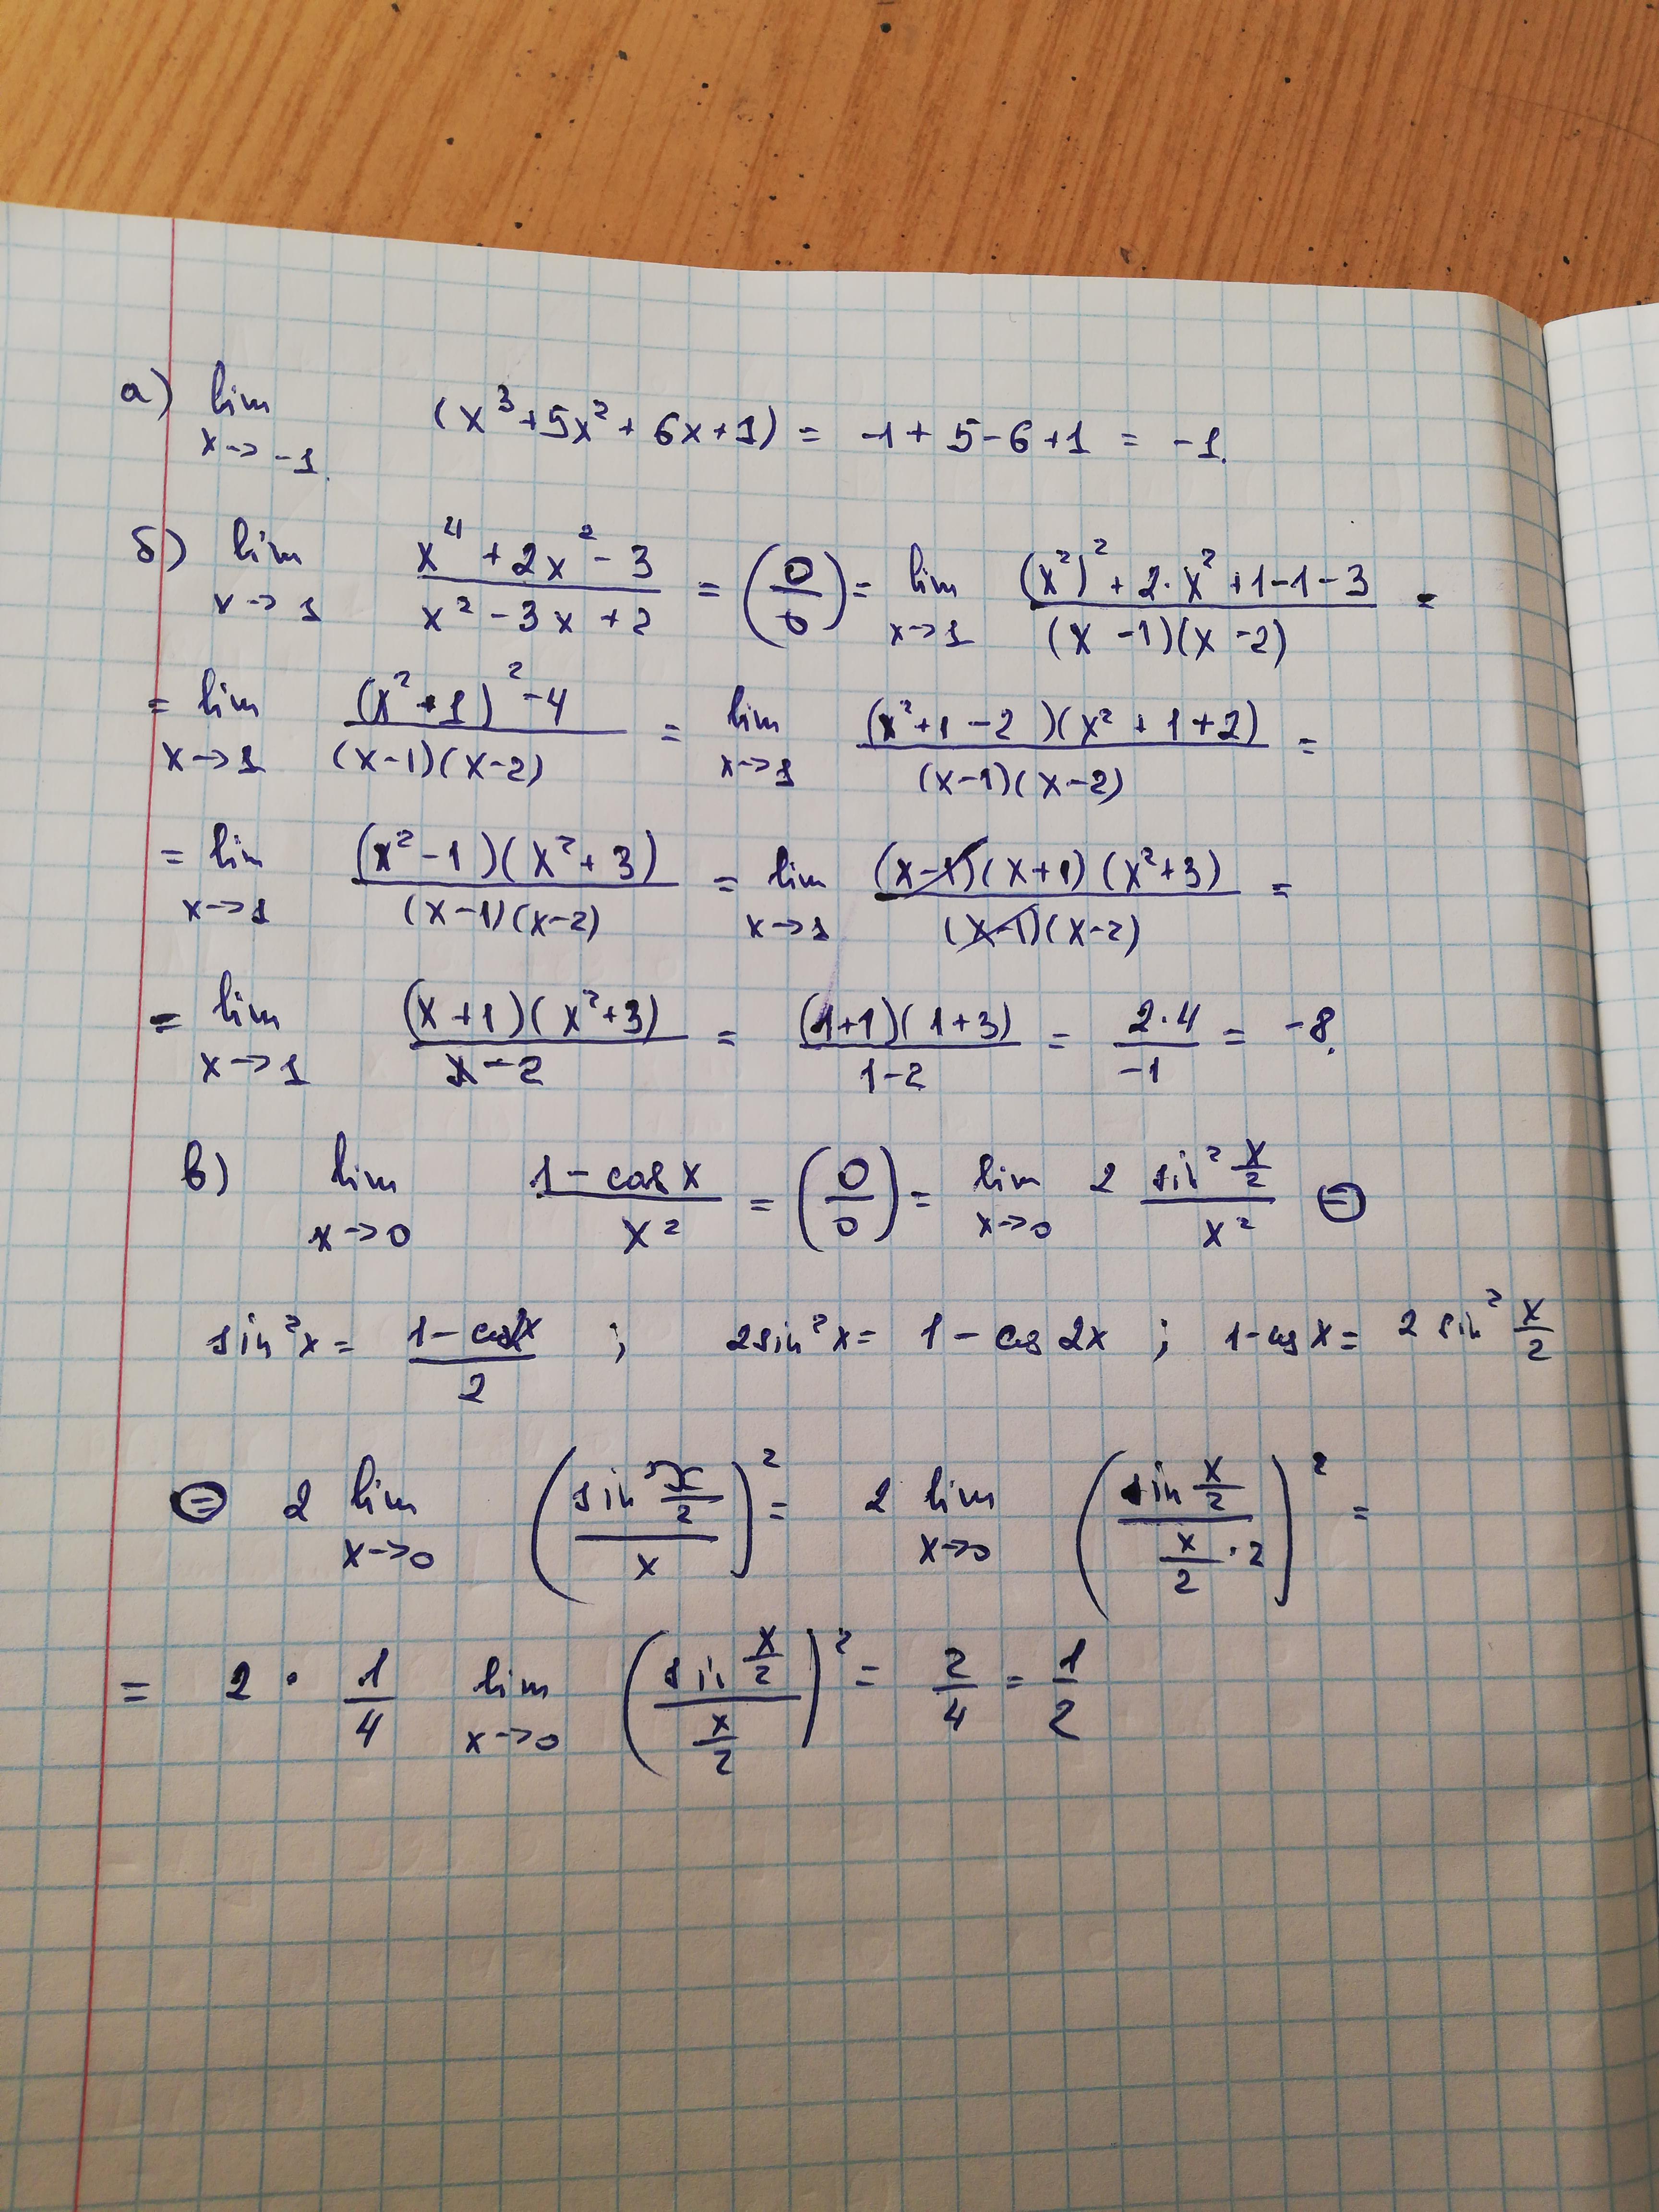 а) lim x→-1 (x³+5x²+6x+1) = -1+5-6+1 = -1.
б) lim x→1 (x⁴+2x²-3)/(x²-3x+2) = (0/0) = lim x→1 ((x²)²+2·x²+1-1-3)/((x-1)(x-2)) =
= lim x→1 ((x²+1)²-4)/((x-1)(x-2)) = lim x→1 ((x²+1-2)(x²+1+2))/((x-1)(x-2)) =
= lim x→1 ((x²-1)(x²+3))/((x-1)(x-2)) = lim x→1 ((x-1)(x+1)(x²+3))/((x-1)(x-2)) =
= lim x→1 ((x+1)(x²+3))/(x-2) = ((1+1)(1+3))/(1-2) = (2·4)/(-1) = -8.
в) lim x→0 (1-cos x)/x² = (0/0) = lim x→0 2 (sin² x/2)/x² ⊜
sin²x = (1-cos2x)/2 ; 2sin²x = 1-cos 2x ; 1-cos x = 2 sin² x/2
⊜ 2 lim x→0 ((sin x/2)/x)² = 2 lim x→0 ((sin x/2)/(x/2 · 2))² =
= 2 · 1/4 lim x→0 ((sin x/2)/(x/2))² = 2/4 = 1/2